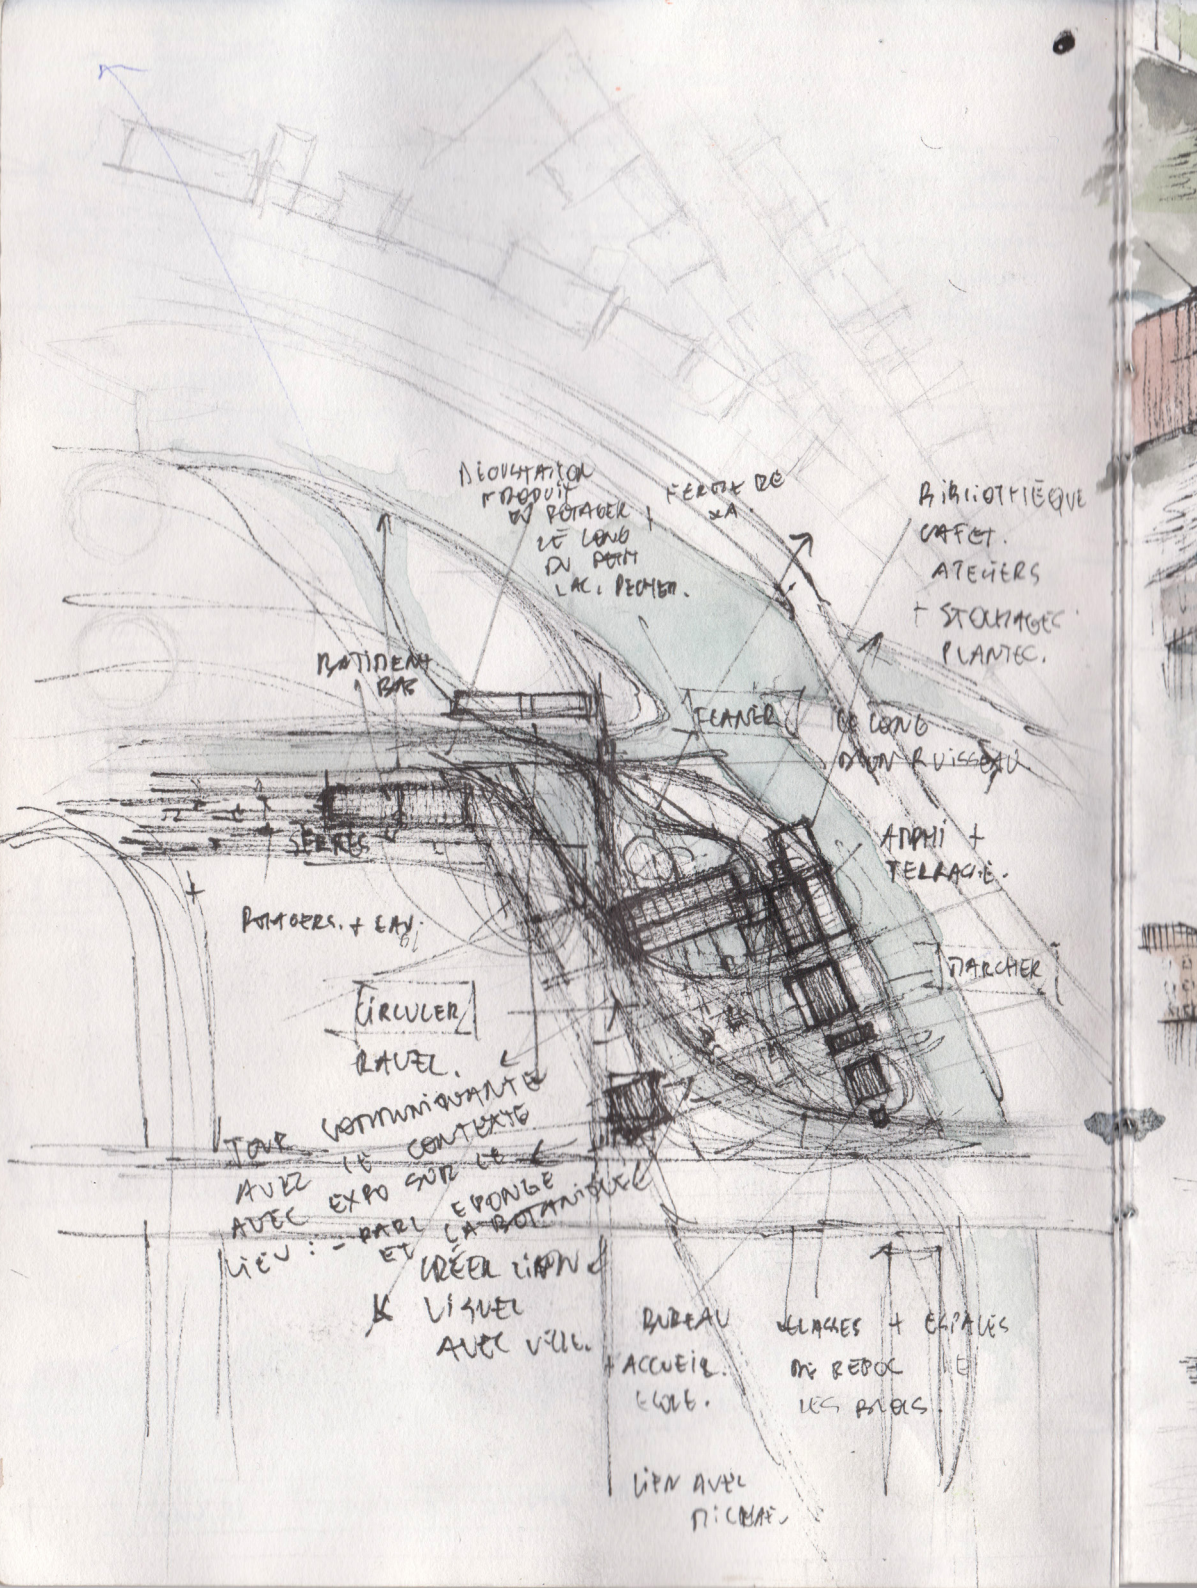 DÉGUSTATION
PRODUIT
DU POTAGER
LE LONG
DU PETIT
LAC, PECHER.
FERME DE
BIBLIOTHÈQUE
CAFET.
ATELIERS
+ STOCKAGES
PLANTES.
BATIMENT
BAS
FLANER
LE LONG
D'UN RUISSEAU
SERRES
AMPHI +
TERRASSE.
POTAGERS. + EAU
MARCHER
CIRCULER
RAVEL.
TOUR COMMUNIQUANTE
AVEC LE CONTEXTE
AVEC EXPO SUR LE
LIEU : - PARC EPONGE
ET LA BOTANIQUE
CRÉER LIEN
VISUEL
AVEC VILLE.
BUREAU
+ ACCUEIL.
ECOLE.
CLASSES + ESPACES
DE REPOS
LES BLOCS.
LIEN AVEC